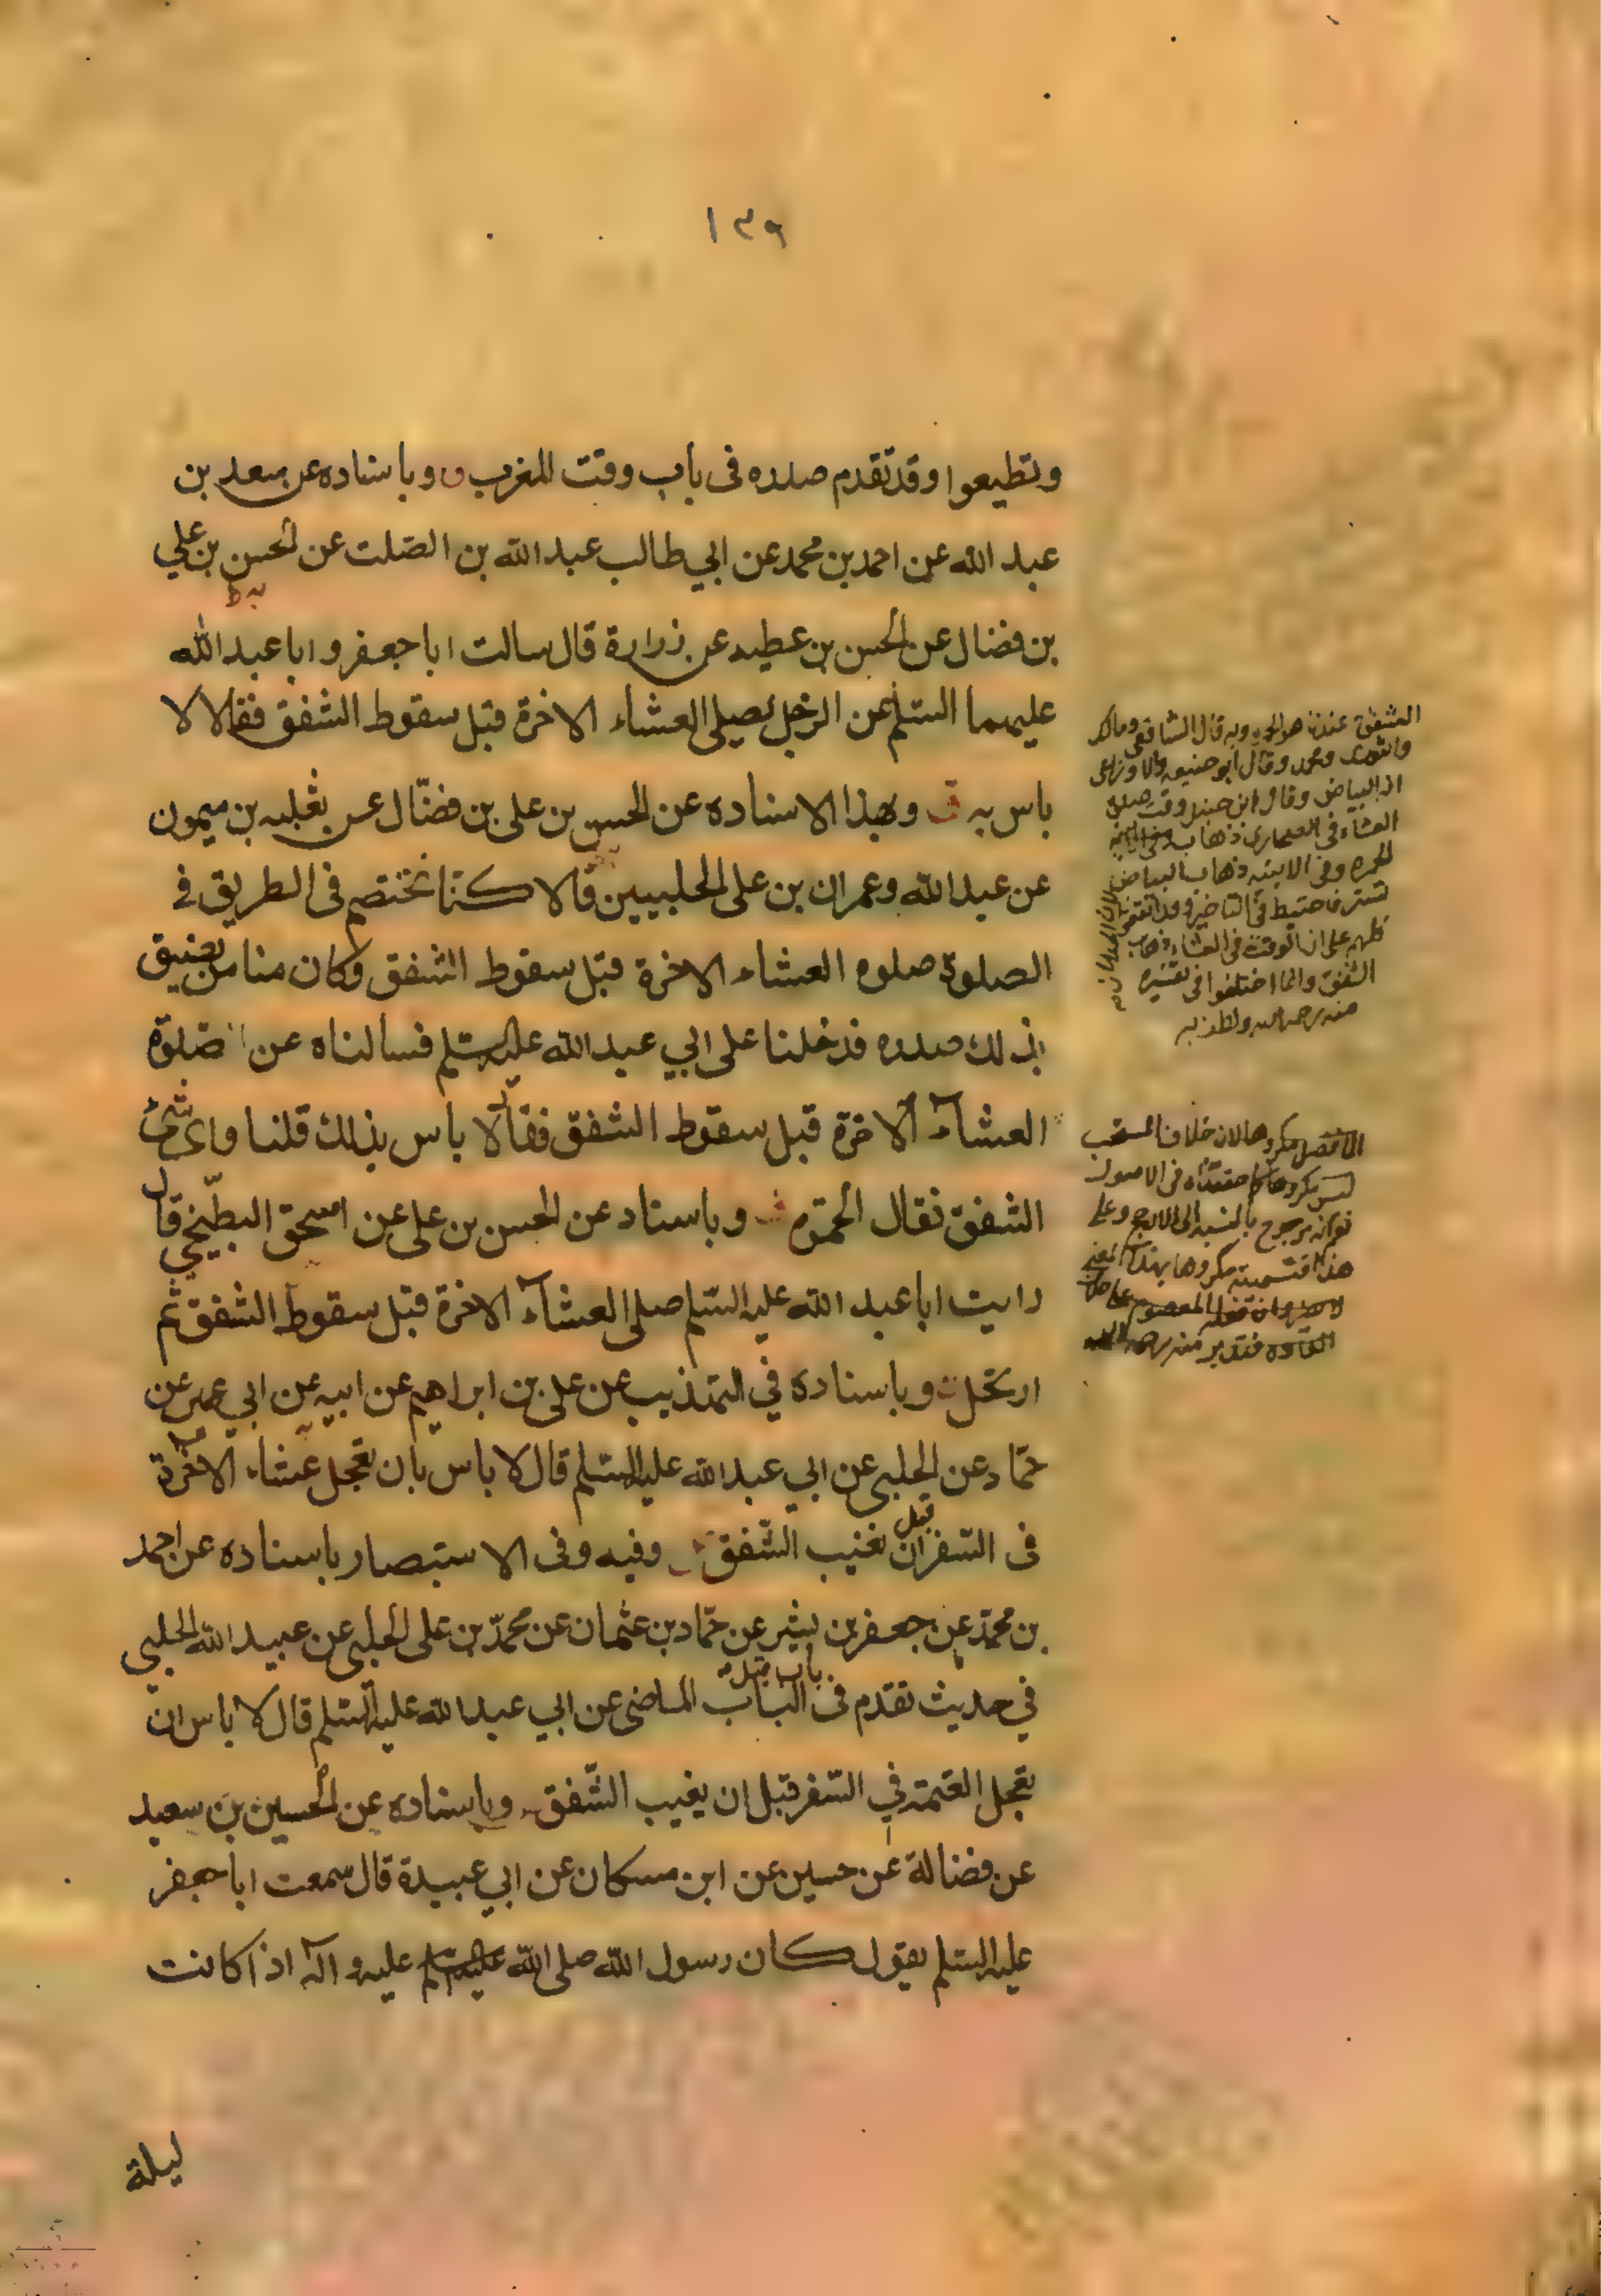 ١٣٩
وتطيعوا وقد تقدم صدره فى باب وقت المغرب وباسناده عن سعد بن
عبد الله عن احمد بن محمد عن ابي طالب عبد الله بن الصلت عن الحسن بن علي
بن فضال عن الحسن بن عطيه عن زرارة قال سالت ابا جعفر و ابا عبد الله
عليهما السلم عن الرجل يصلي العشاء الاخرة قبل سقوط الشفق فقالا لا
باس به وبهذا الاسناده عن الحسن بن على بن فضّال عن ثعلبه بن ميمون
عن عبد الله وعمران بن على الحلبيين قالا كنا نختصم فى الطريق في
الصلوة صلوه العشاء الاخرة قبل سقوط الشفق وكان منا من يضيق
بذلك صدره فدخلنا على ابي عبد الله عليه السلم فسالناه عن صلوة
العشاء الاخرة قبل سقوط الشفق فقال لا باس بذلك قلنا واى شئ
الشفق فقال الحمرة وباسناد عن الحسن بن على عن اسحق البطّيخي قال
رايت ابا عبد الله عليه السلم صلى العشاء الاخرة قبل سقوط الشفق ثم
ارتحل وباسناده في التهذيب عن على بن ابراهيم عن ابيه عن ابي عمير عن
حمّاد عن الحلبي عن ابي عبد الله عليه السلم قال لا باس بان تعجل عشاء الاخرة
فى السفر قبل ان تغيب الشّفق وفيه وفى الاستبصار باسناده عن احمد
بن محمّد عن جعفر بن بشير عن حمّاد بن عثمان عن محمّد بن على الحلبي عن عبيد الله الحلبي
في حديث تقدم فى الباب الماضى عن ابي عبد الله عليه السلم قال لا باس ان
تعجل العتمة في السّفر قبل ان يغيب الشّفق وباسناده عن الحسين بن سعيد
عن فضالة عن حسين عن ابن مسكان عن ابي عبيدة قال سمعت ابا جعفر
عليه السلم يقول كان رسول الله صلى الله عليه السلم عليه و آله اذا كانت
ليلة
الشفق عندنا هو الحمرة وبه قال الشافعى ومالك
وقال ابو حنيفه والاوزاعى
البياض وقال ابن حنبل وقت
العشاء فى الصحارى ذهاب
الحمره وفى الابنيه ذهاب البياض
كلهم على ان الوقت فى العشاء ذهاب
الشفق وانما اختلفوا فى تفسيره
منه رحمه الله
مكروها لان خلاف المستحب
ليس بمكروه كما حققناه فى الاصول
مرجوح بالنسبة الى الارجح وعلى
هذا فتسميته مكروها بهذا المعنى
فتدبر منه رحمه الله